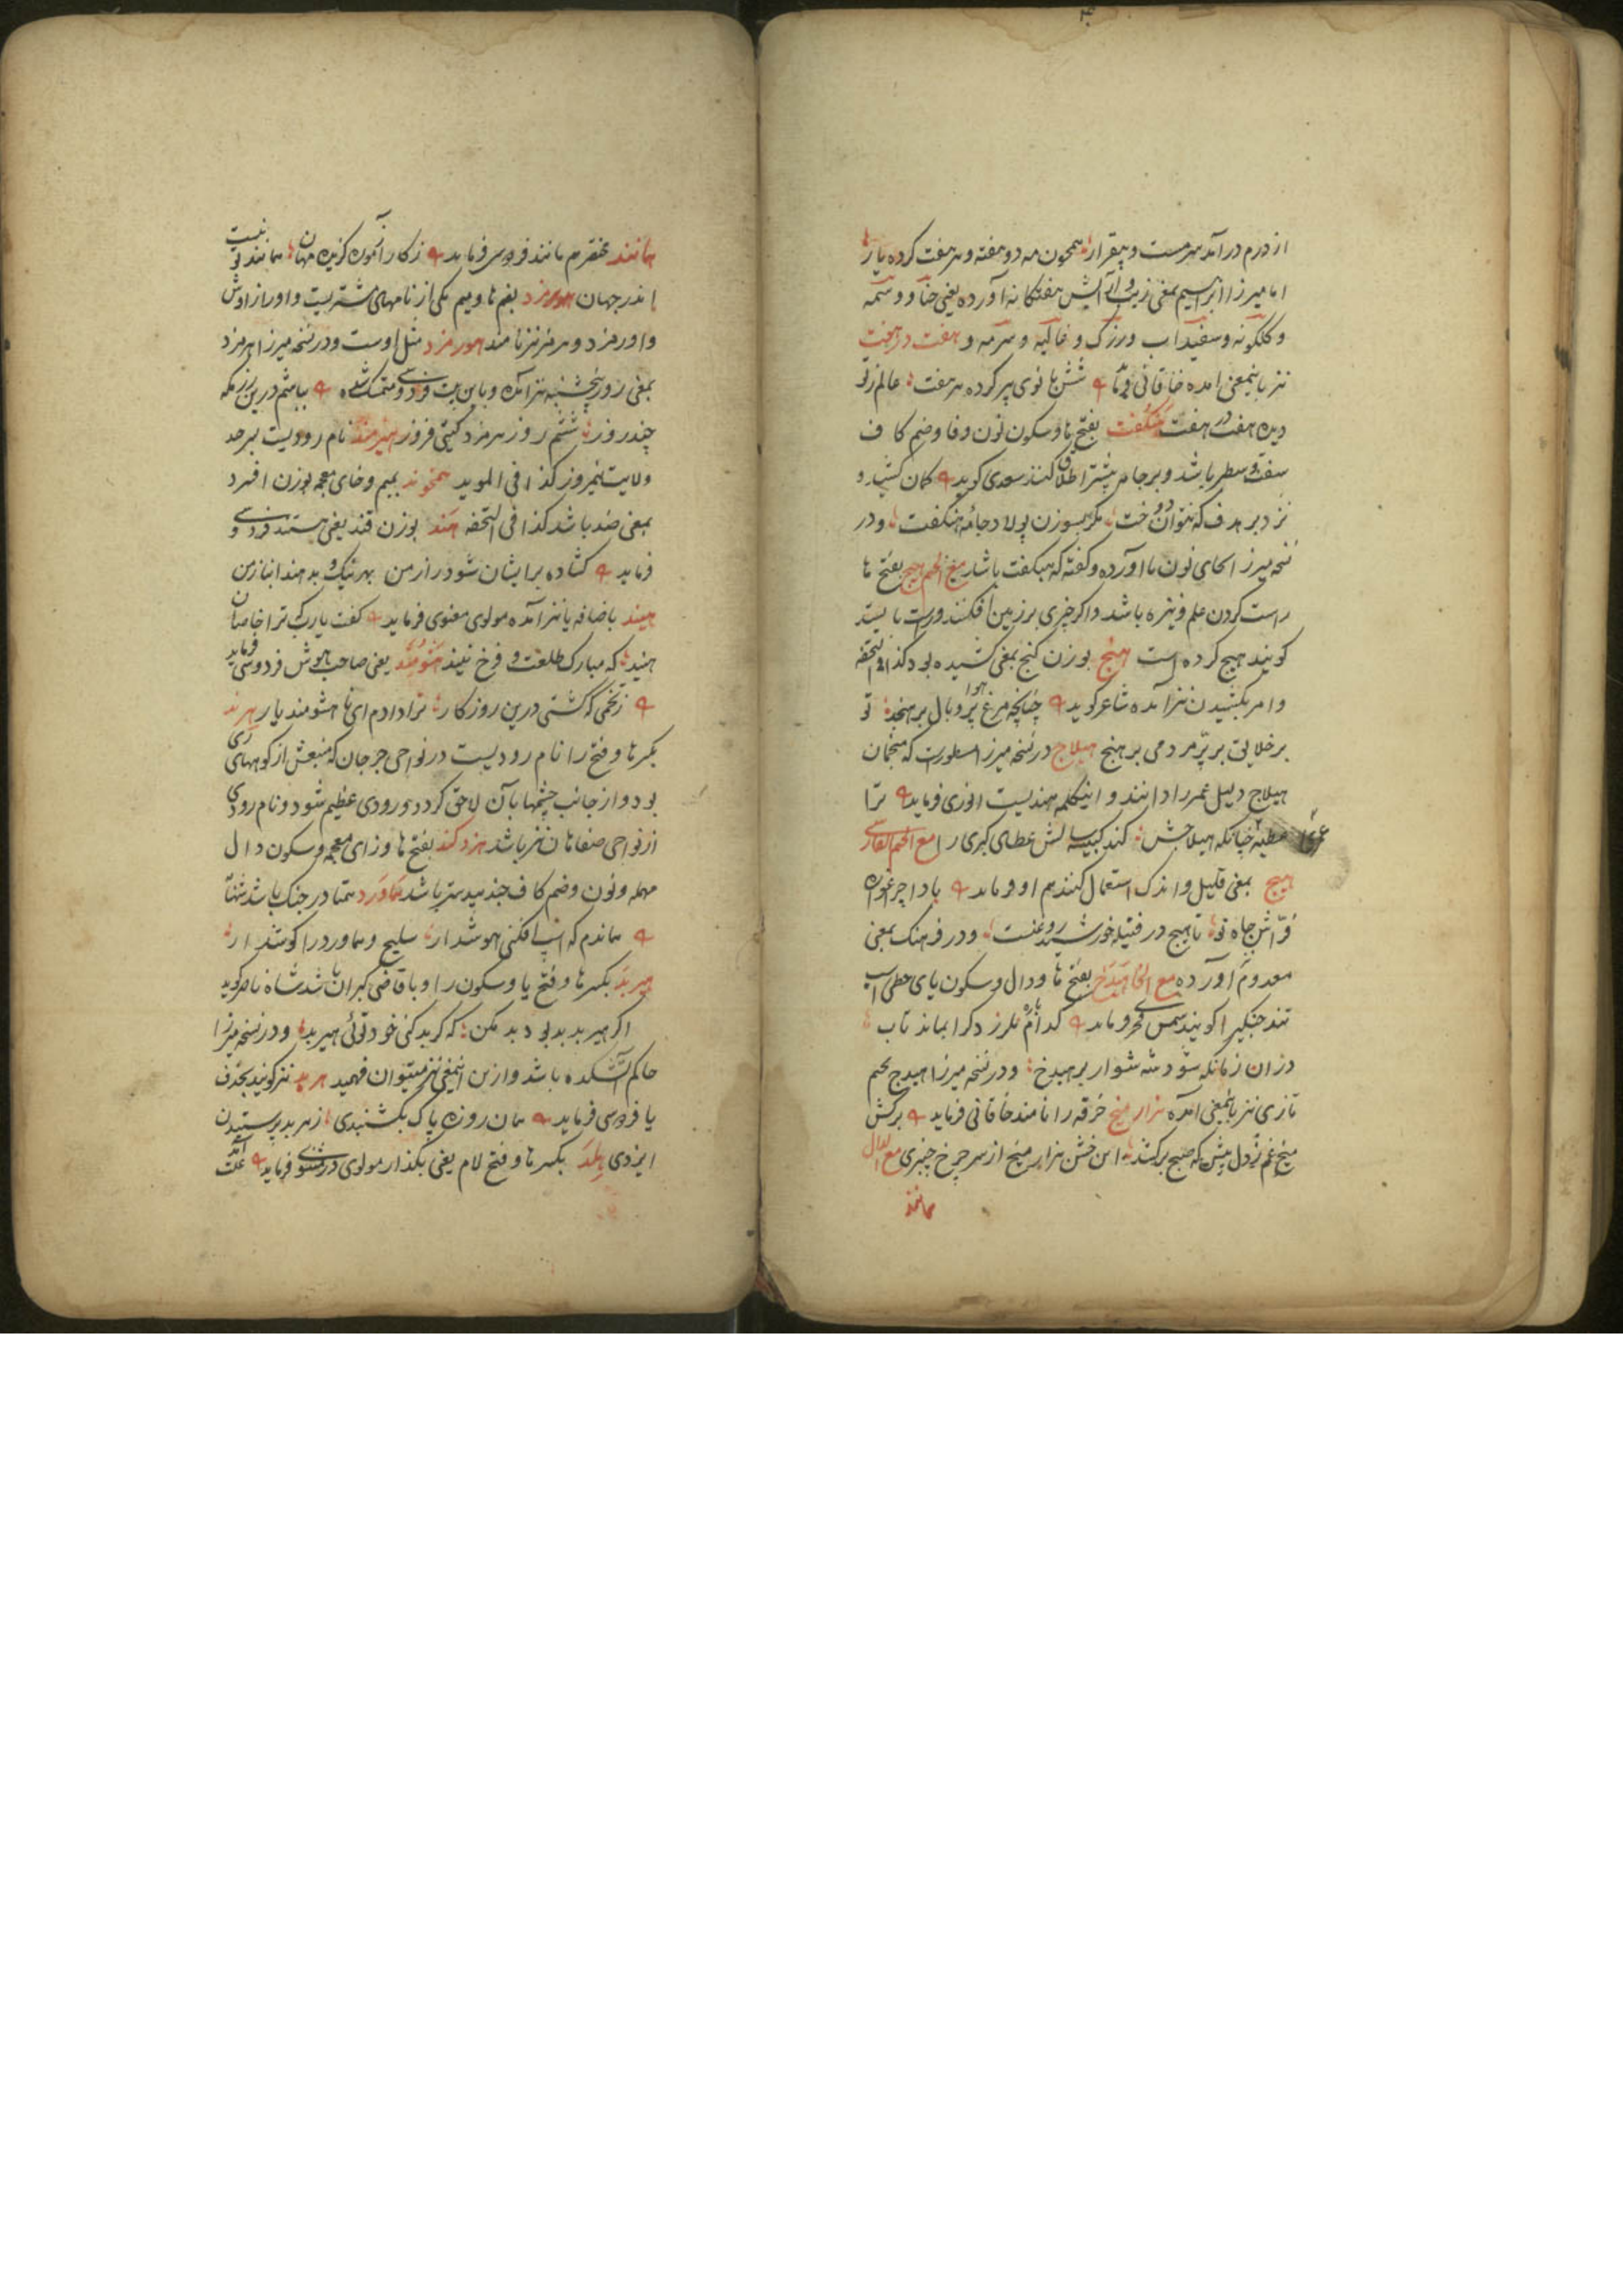 از درم درآمد سرمست و بیقرار همچون مه دو هفته و هر هفت کرده یار
اما میرزا ابراهیم بمعنی زیب و آرایش هفتکانه آورده یعنی حنا و وسمه
و کلکونه و سفیداب و زرک و غالیه و سرمه و هفت در هفت
نیز باینمعنی امده خاقانی فرماید شش بانوی پیر کرده هر هفت عالم زتو
دیده هفت در هفت هنکفت بفتح ها و سکون نون و فا و ضم کاف
سفت و سطبر باشد و بر جامه بیشتر اطلاق کنند سعدی کوید کمان کشید و
نزد بر هدف که نتوان دوخت مکر بسوزن پولاد جامه هنکفت و در
نسخه میرزا بجای نون با آورده و کفته که هبکفت باشد مع الجیم هیج بفتح ها
راست کردن علم و نیزه باشد و اکر چیزی بر زمین افکنند و راست بایستد
کویند هیج کرده است هنج بوزن کنج بمعنی کشیده بود کذا فی التحفه
و امر بکشیدن نیز آمده شاعر کوید چنانچه مرغ هوا پر و بال برهنجد تو
بر خلایق بر پر مردمی برهنج هیلاج در نسخه میرزا مسطورست که منجمان
هیلاج دلیل عمر را دانند و اینکلمه هندیست انوری فرماید ترا
عطیه عمری چنانکه هیلاجش کند کبیسه سالش عطای کبری را مع الجیم الفارسی
هیچ بمعنی قلیل و اندک استعمال کنند هم او فرماید باد اچراغواره
فراش جاه تو تا هیچ در فتیله خورشید روغنست و در فرهنک بمعنی
معدوم آورده مع الخا هیدخ بفتح ها و دال و سکون یای حطی اسب
تند جنکی را کویند شمس فخری فرماید
در ان زمانکه شود شه سوار بر هیدخ و در نسخه میرزا هیدج بجیم
تازی نیز باینمعنی آمده هزار میخ خرقه را نامند خاقانی فرماید برکش
میخ غم زدل پیش که صبح برکشد این خشن هزار میخ از سر چرخ چنبری مع الدال
همانند
همانند مختصرهم مانند فردوسی فرماید ز کار آزموده کزیده مهان همانند تو نیست
اندر جهان هورمزد بضم ها و میم یکی از نامهای مشتریست و او را زاوش
و اورمزد و هرمز نیز نامند هورمزد مثل اوست و در نسخه میرزا هرمزد
بمعنی روز پنجشنبه نیز آمده و باین بیت فردوسی متمسک شده بباشم درین رزمکه
چند روز ششم روز هرمزد کیتی فروز هیرمند نام رودیست بسرحد
ولایت نیمروز کذا فی الموید همخوند بمیم و خای معجمه بوزن افسرد
بمعنی ضد باشد کذا فی التحفه هند بوزن قند یعنی هستند فردوسی
فرماید کشاده برایشان شود راز من بهر نیک و بد هند انباز من
هیند باضافه یا نیز آمده مولوی معنوی فرماید کفت یارب کی ترا خاصان
هیند که مبارک طلعت و فرخ نیند هشومند یعنی صاحب هوش فردوسی فرماید
ز تخمی که کشتی درین روزکار ترا دادم ای ناهشومند یار هرند
بکسر ها و فتح را نام رودیست در نواحی جرجان که منبعش از کوههای ری
بود و از جانب چشمها بآن لاحق کردد و رودی عظیم شود و نام رودی
از نواحی صفاهان نیز باشد هزد کند بفتح ها و زای معجمه و سکون دال
مهمله و نون و ضم کاف جندبیدستر باشد هماورد همتا در جنک باشد
هماندم که اسب افکنی هوشدار سلیح و هماورد را کوشدار
هیربد بکسر ها و فتح با و سکون را و یا قاضی کبران باشد شاه ناصر کوید
اکر هیربد بد بود بد مکن که کر بد کنی خود توئی هیربد و در نسخه میرزا
حاکم آتشکده باشد و ازین اینمعنی نیز میتوان فهمید هربد نیز کویند بحذف
یا فردوسی فرماید همان روزه پاک یکشنبدی ز هربد پرستیدن
ایزدی هلد بکسر ها و فتح لام یعنی بکذارد مولوی در مثنوی فرماید علت آمد